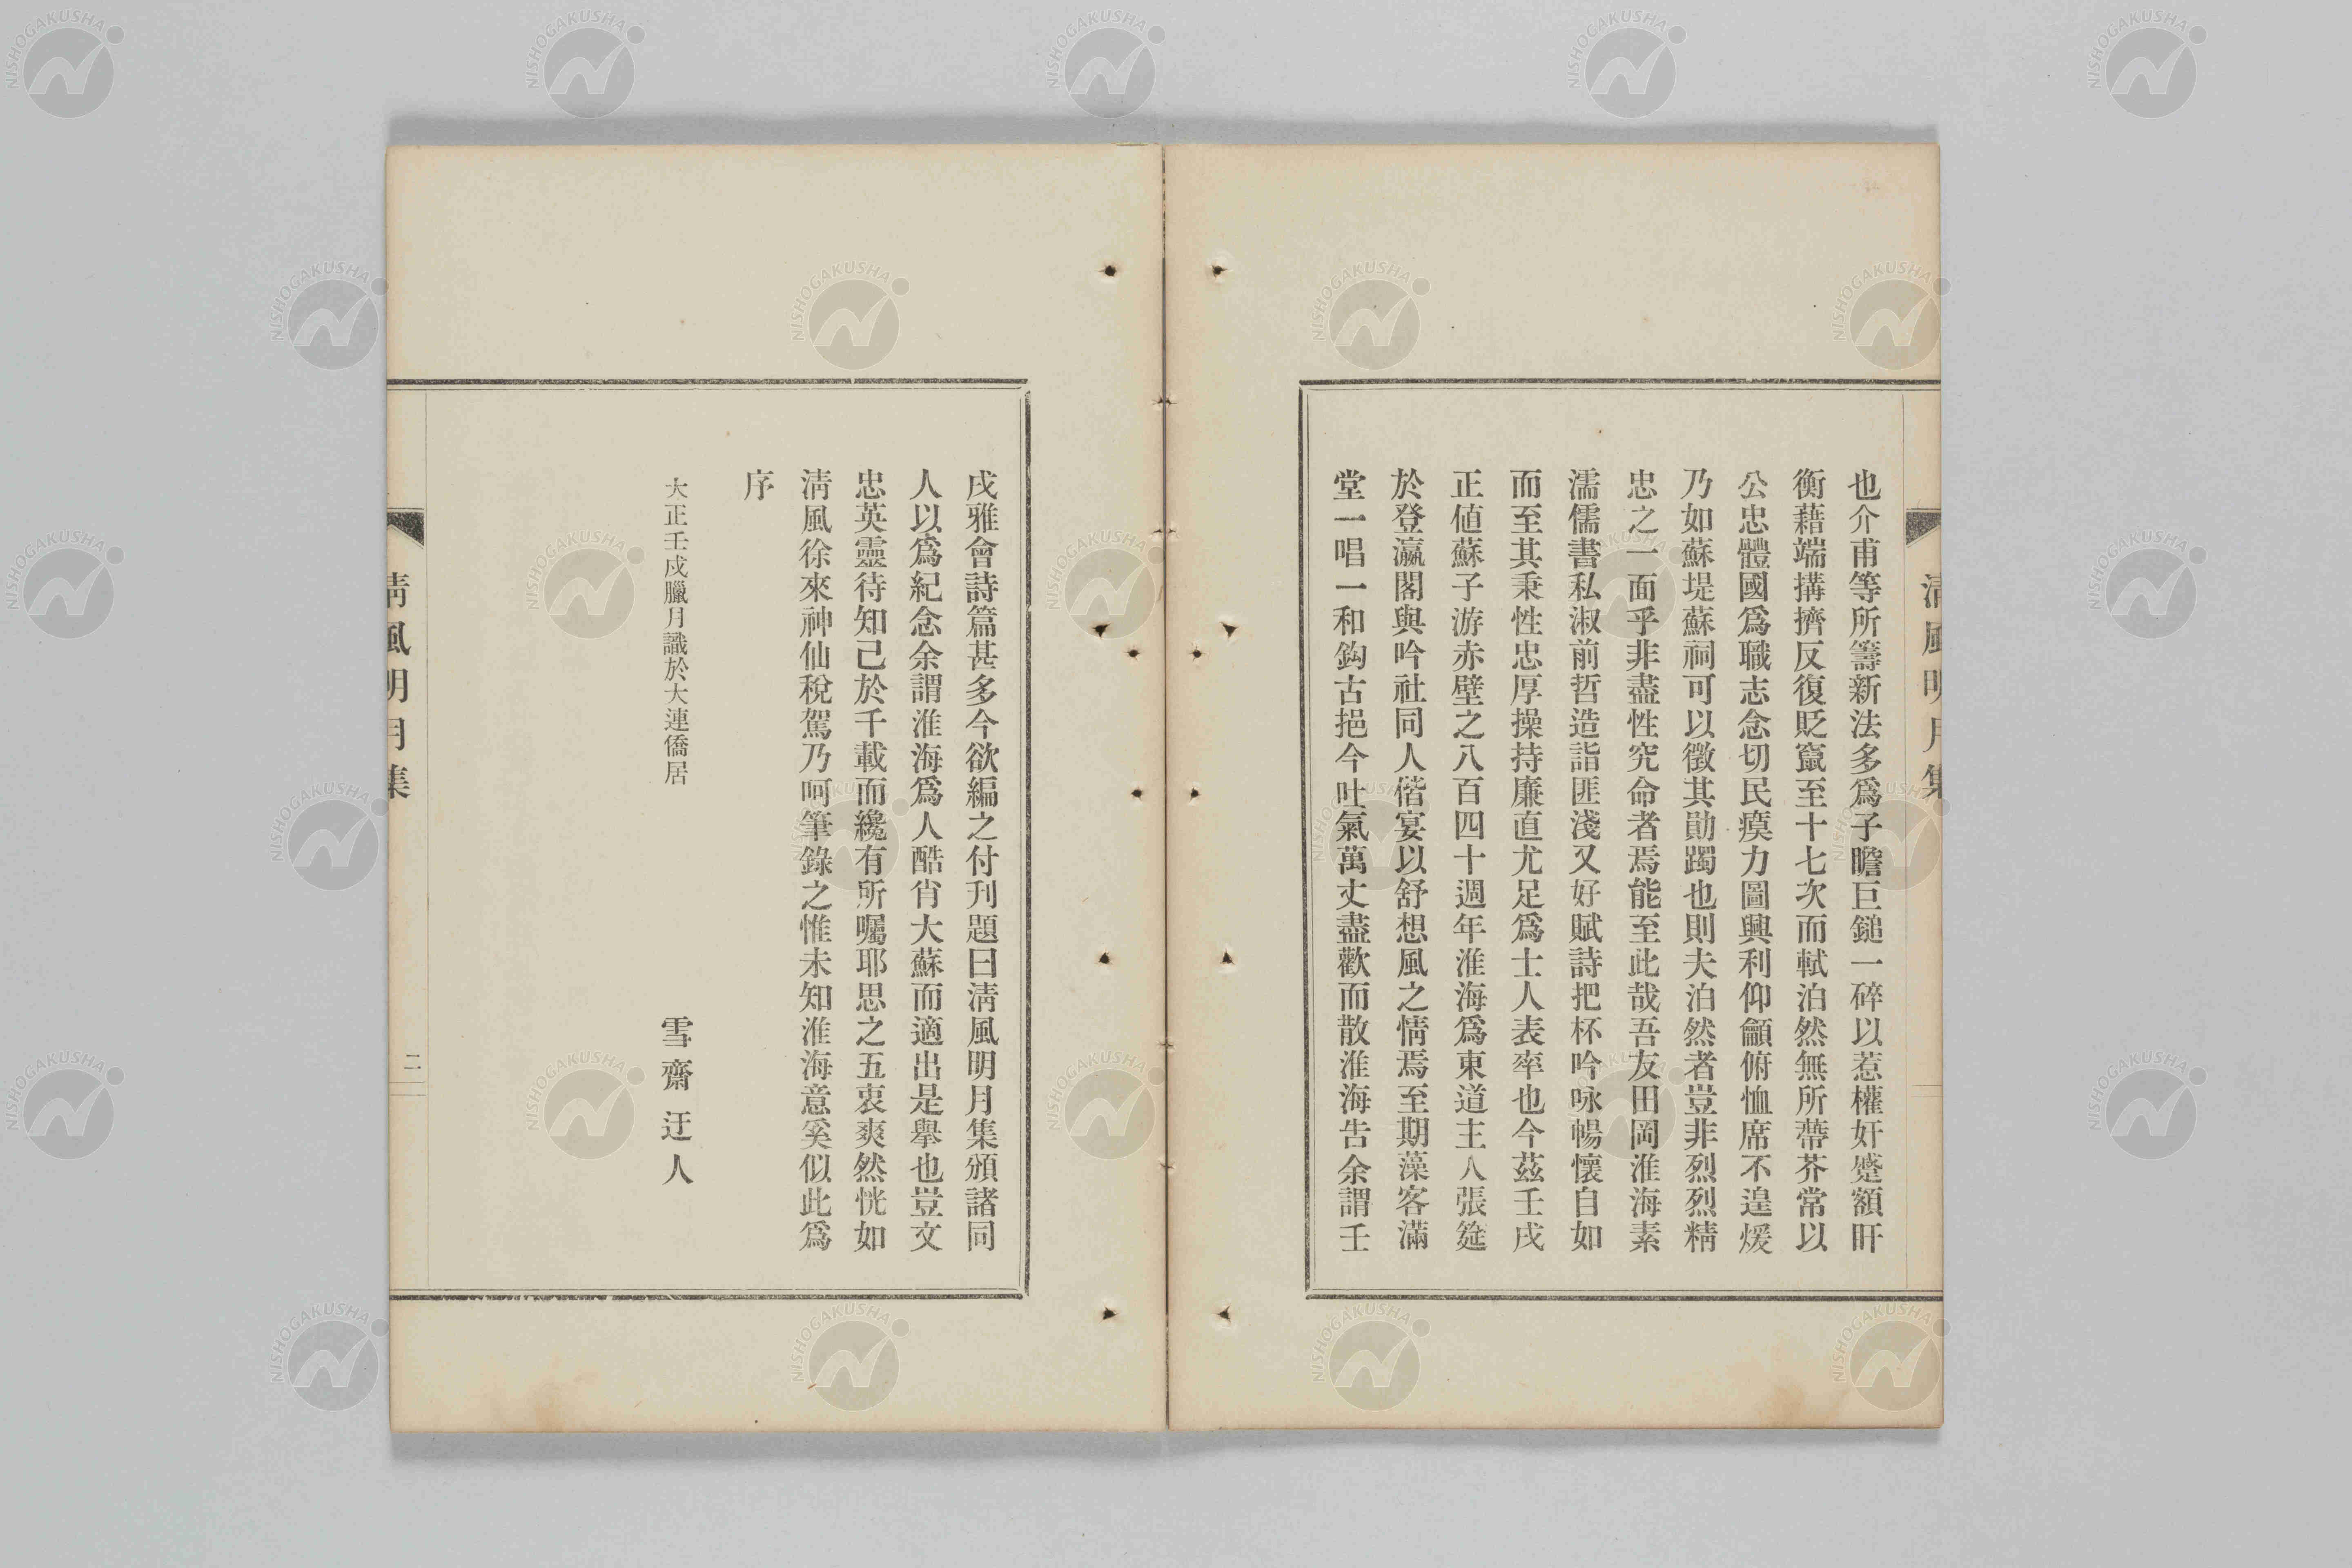 也介甫等所籌新法多爲子瞻巨鎚一碎以惹權奸蹙額盰
衡藉端搆擠反復貶竄至十七次而軾泊然無所蔕芥常以
公忠體國爲職志念切民瘼力圖興利仰籲俯恤席不遑煖
乃如蘇堤蘇祠可以徵其勛躅也則夫泊然者豈非烈烈精
忠之一面乎非盡性究命者焉能至此哉吾友田岡淮海素
濡儒書私淑前哲造詣匪淺又好賦詩把杯吟咏暢懷自如
而至其秉性忠厚操持廉直尤足爲士人表率也今茲壬戌
正値蘇子游赤壁之八百四十週年淮海爲東道主人張筵
於登瀛閣與吟社同人偕宴以舒想風之情焉至期藻客滿
堂一唱一和鈎古挹今吐氣萬丈盡歡而散淮海告余謂壬
淸風明月集
戌雅會詩篇甚多今欲編之付刊題曰淸風明月集頒諸同
人以爲紀念余謂淮海爲人酷肖大蘇而適出是擧也豈文
忠英靈待知己於千載而纔有所囑耶思之五衷爽然恍如
淸風徐來神仙稅駕乃呵筆錄之惟未知淮海意奚似此爲
序
大正壬戌臘月識於大連僑居
雪齋迂人
淸風明月集
二
NISHOGAKUSHA